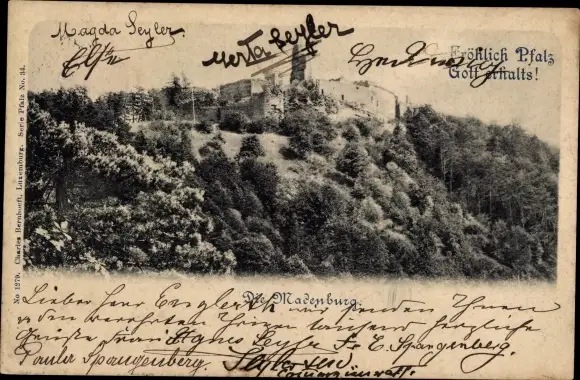 Magda Seyler.
Elsa
Merta Seyler
Fröhlich Pfalz
Gott erhalts!
No 1279. Charles Bernhoeft, Luxemburg. Serie Pfalz No. 34.
Die Madenburg.
Lieber Herr Englerth wir senden Ihnen
u. den verehrten Ihrigen tausend herzliche
Grüsse Frau Agnes Seyler Fr. E. Spangenberg.
Paula Spangenberg. Seyler